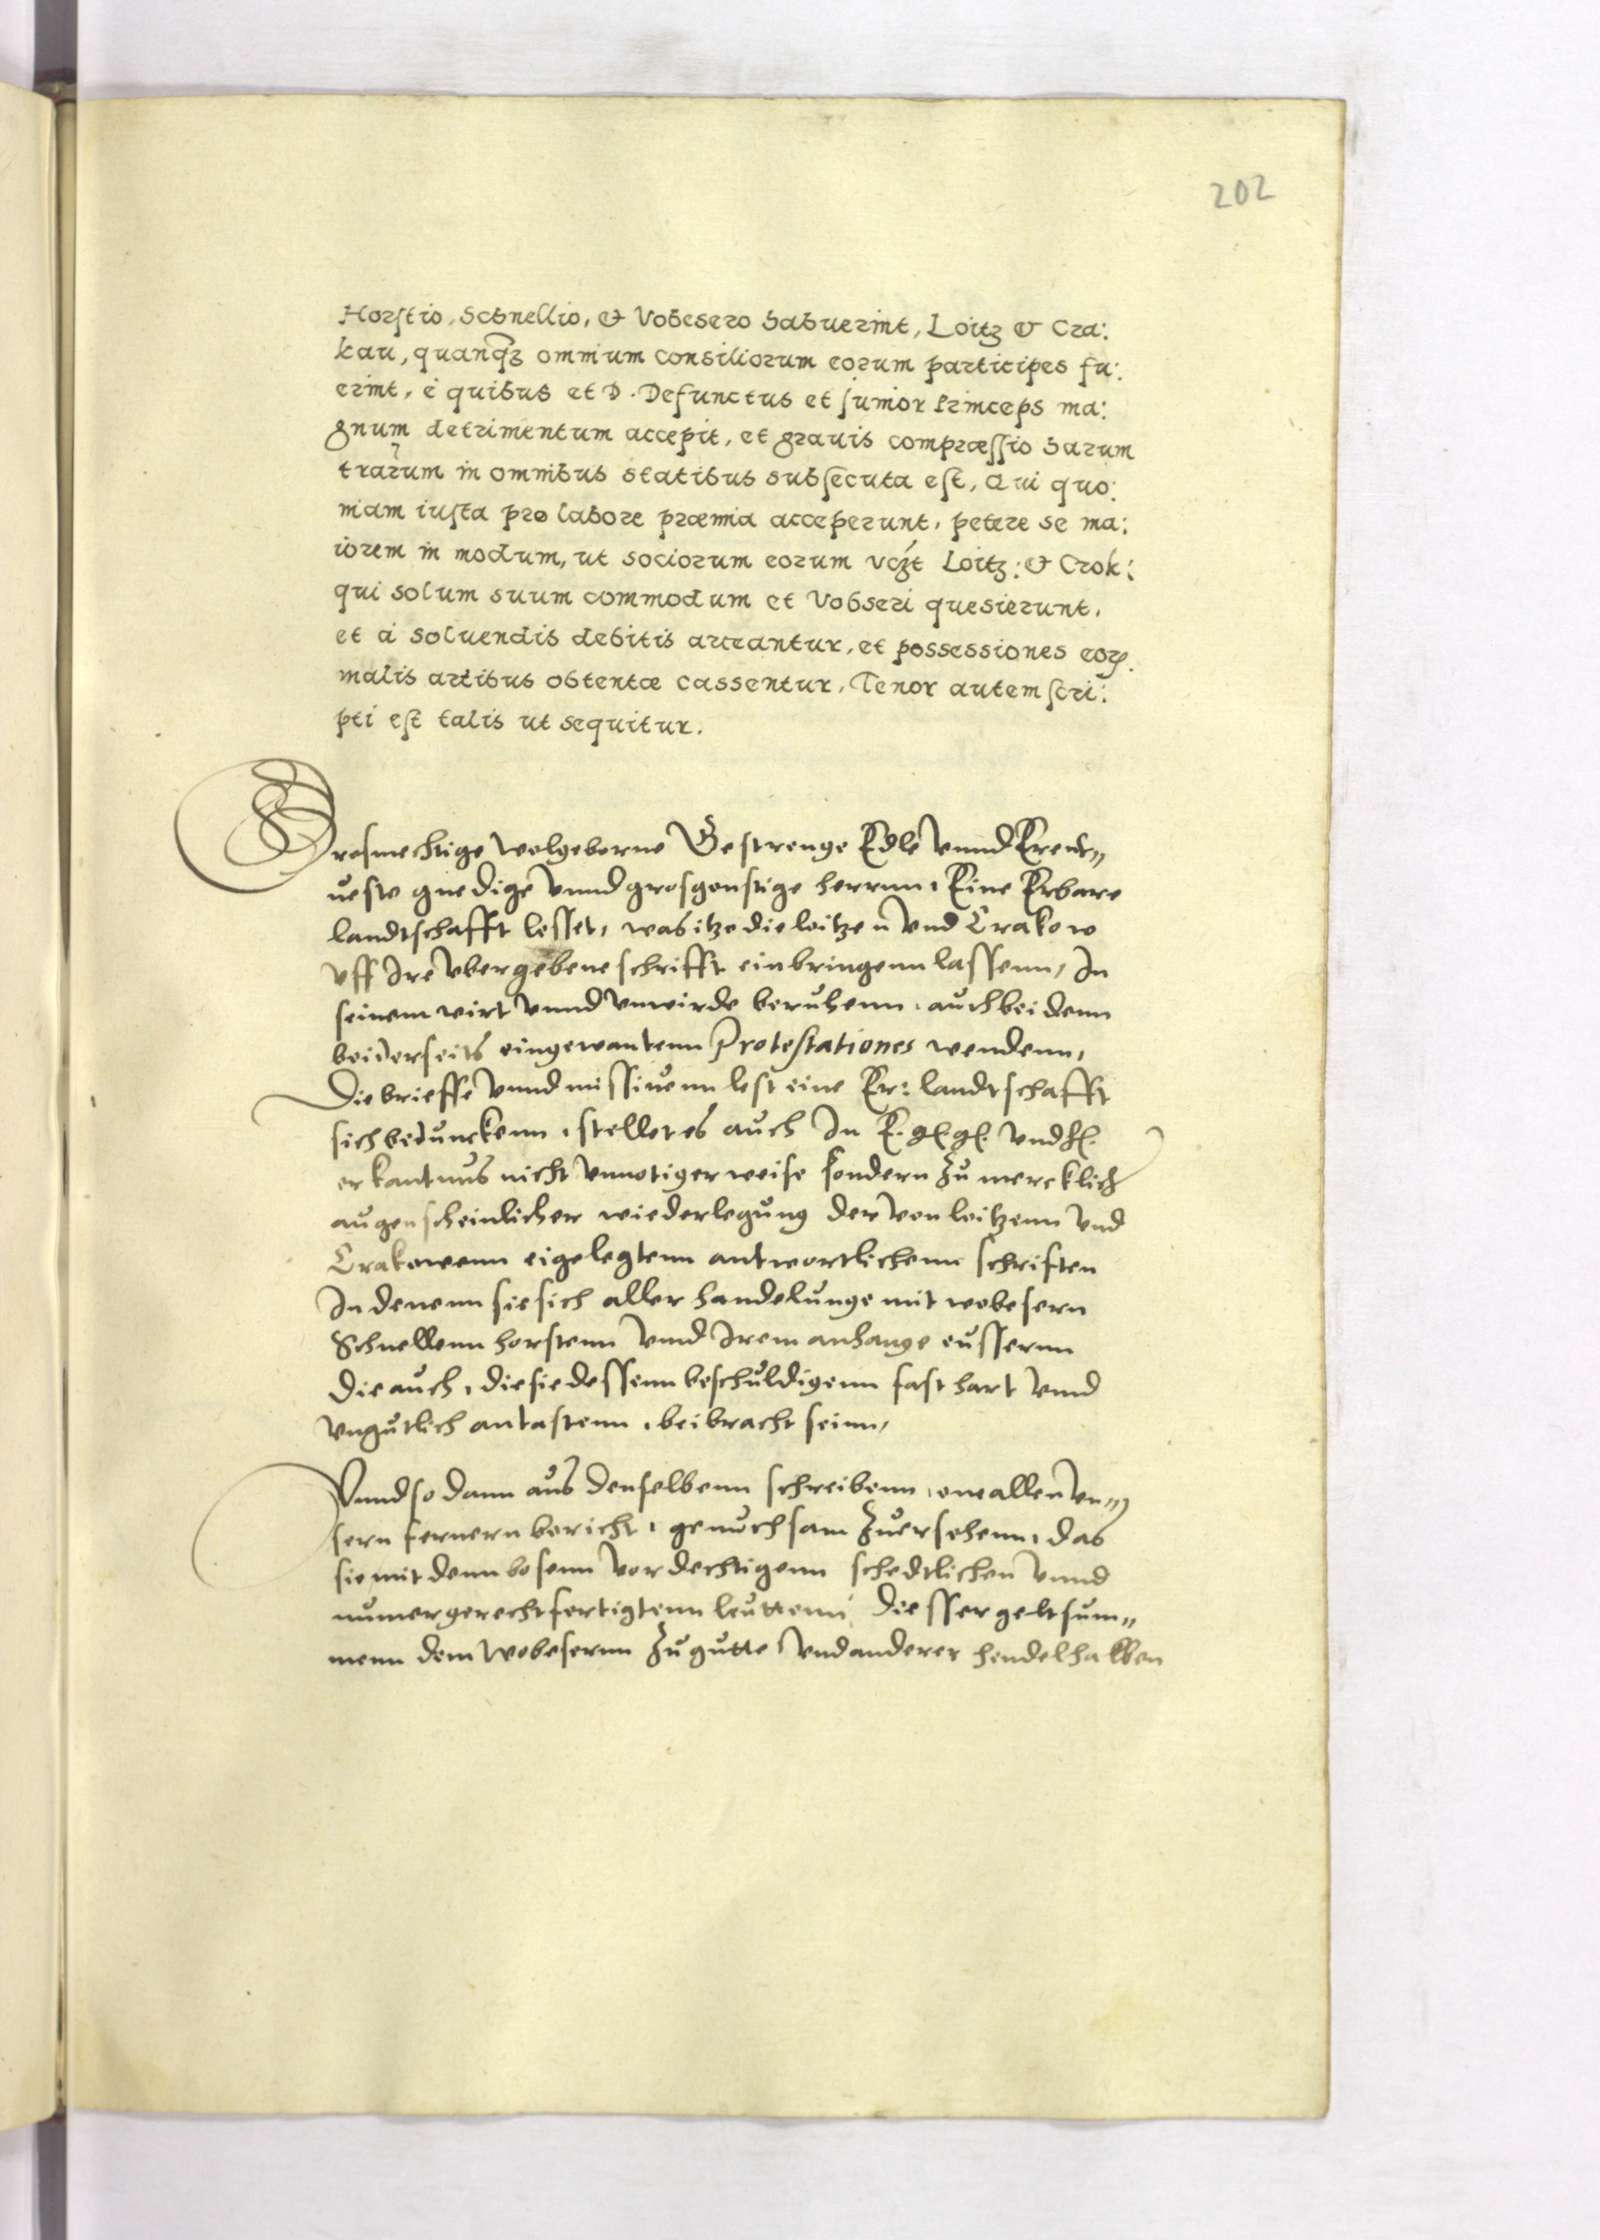 202
Horstio, Schnellio, & Vobesero habuerint, Loitz & Cra:
kau, quanqȝ omnium consiliorum eorum participes fu:
erint, é quibus et D. Defunctus et Junior Princeps ma:
gnum detrimentum accepit, et gravis compræssio harum
trarum in omnibus statibus subsecuta est, Qui quo:
niam iusta pro labore præmia acceperunt, petere se ma:
iorem in modum, ut sociorum eorum vczt Loitz: & Crok:
qui solum suum commodum et Vobseri quesierunt,
et á soluendis debitis arceantur, et possessiones eorꝝ.
malis artibus obtentæ cassentur, Tenor autem scri:
pti est talis ut sequitur.
Grosmechtige wolgeborne Gestrenge Edle vnnd Erent„
ueste gnedige vnnd grosgonstige herrnn, Eine Erbare
landtschafft lesset, was itzo die loitzen vnd Crakow
vff Ire vbergebene schrifft einbringenn lassenn, In
seinem wirt vnnd vnwirde beruhenn, auch bei denn
beiderseits eingewantenn Protestationes wendenn,
Die brieffe vnnd missiuenn lest eine Er: landtschafft
sich bedunckenn, stellet es auch In E. gl. gl. vnd hl.
erkantnus nicht vnnotiger weise sondern zu mercklich
augenscheinlicher wiederlegung der von loitzenn vnd
Crakowenn eigelegtenn antwortlichenn schriften
In denenn sie sich aller handelunge mit wobesern
Schnellenn horstenn vnnd Irem anhange eussernn
Die auch, die sie dessenn beschuldigenn fast hart vnnd
vngutlich antastenn, beibracht seinn,
Vnnd so dann aus denselbenn schreibenn, one allen vn„
sern fernern bericht, genuchsam zuersehenn, das
sie mit denn bosenn vordechtigenn schedtlichen vnnd
numer gerechtfertigtenn leuttenn, Diesser geltsum„
menn dem wobesernn zu gutte vnd anderer hendel halben